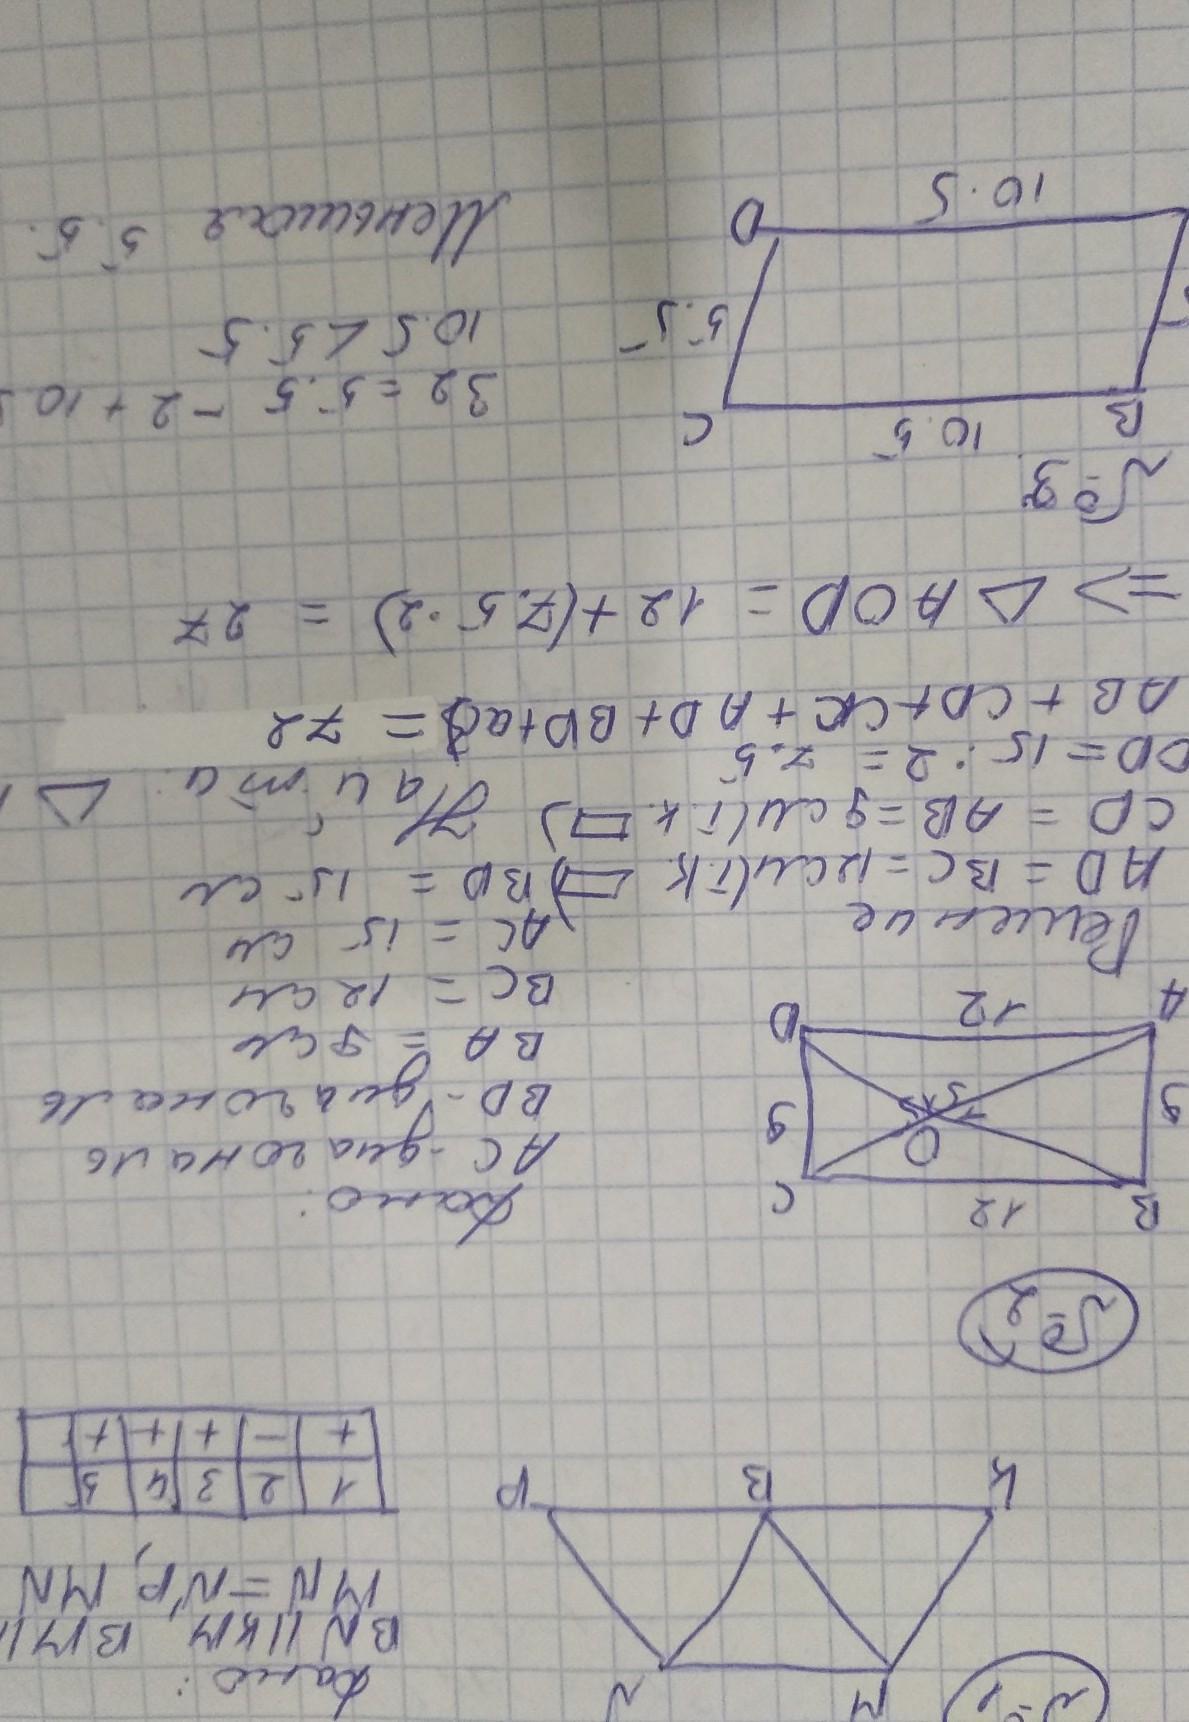 №1
M
N
K
B
P
Дано:
BN || KM, BM ||
MN = NP, MN
1 2 3 4 5
+ - + + +
№2
B
12
C
9
O
9
A
12
D
Дано:
AC - диагональ
BD - диагональ
BA = 9 см
BC = 12 см
AC = 15 см
BD = 15 см
Найти: △
Решение
AD = BC = 12 см (т.к. ▭)
CD = AB = 9 см (т.к. ▭)
OD = 15 : 2 = 7.5
AB + CD + + AD + BD + = 72
=> △ AOD = 12 + (7.5 · 2) = 27
№3
B
10.5
C
5.5
10.5
D
32 = 5.5 - 2 + 10.5
10.5 < 5.5
Меньшая 5.5.